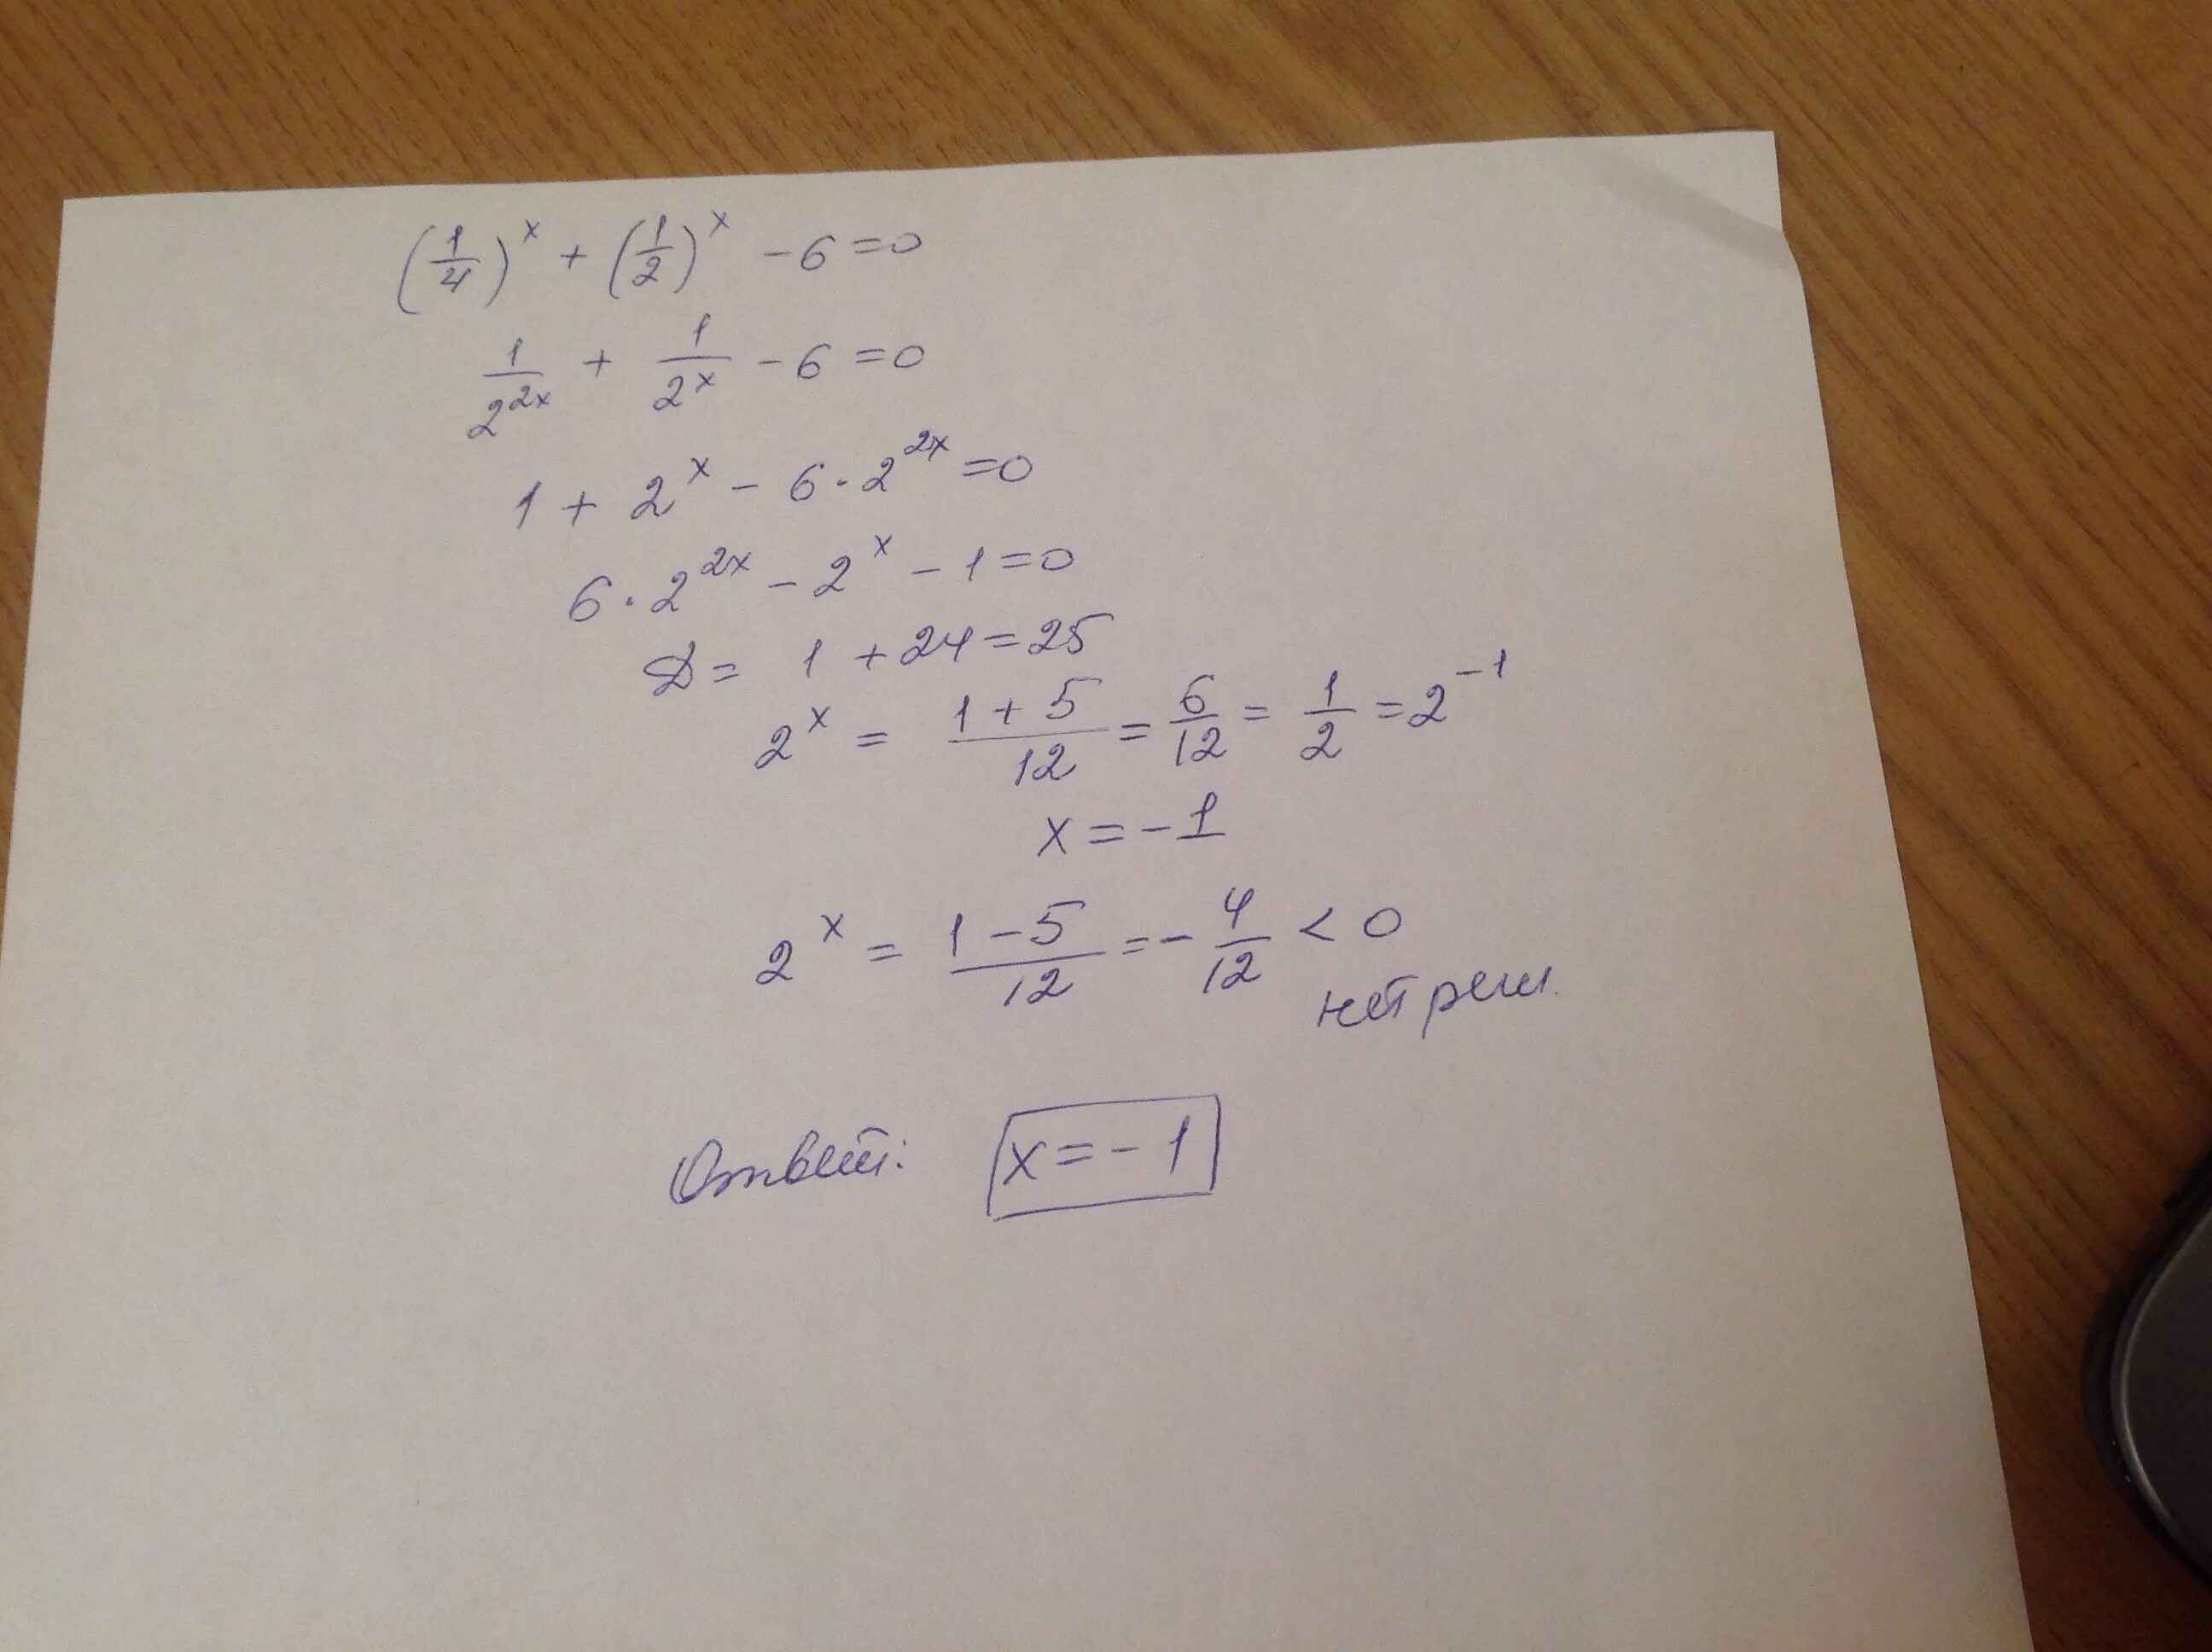 (1/4)^x + (1/2)^x - 6 = 0
1/2^{2x} + 1/2^x - 6 = 0
1 + 2^x - 6 · 2^{2x} = 0
6 · 2^{2x} - 2^x - 1 = 0
D = 1 + 24 = 25
2^x = (1 + 5)/12 = 6/12 = 1/2 = 2^{-1}
x = -1
2^x = (1 - 5)/12 = - 4/12 < 0
нет реш.
Ответ: x = -1